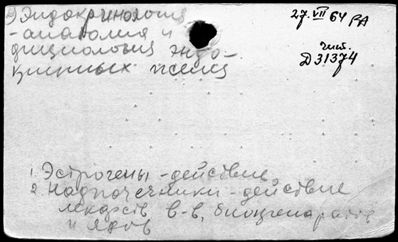 Эндокринология
-анатомия и
физиология эндо-
кринных желез
27.VII 64 РА
чит.
Д31374
1. Эстрогены - действие
2. Надпочечники - действие
лекарств в-в, биопрепаратов
и ядов